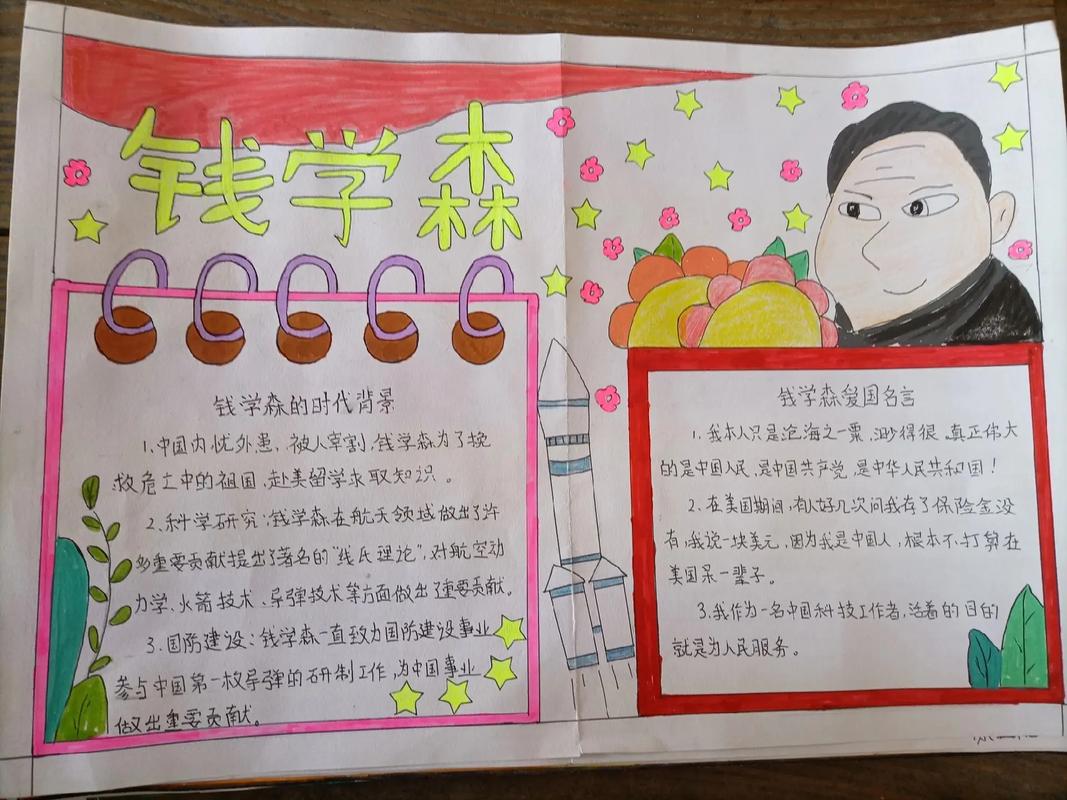 钱学森
钱学森的时代背景
1、中国内忧外患、被人宰割,钱学森为了挽
救危亡中的祖国,赴美留学求取知识。
2、科学研究:钱学森在航天领域做出了许
多重要贡献提出了著名的"线氏理论",对航空动
力学、火箭技术、导弹技术等方面做出了重要贡献。
3、国防建设:钱学森一直致力国防建设事业
参与中国第一枚导弹的研制工作,为中国事业
做出重要贡献。
钱学森爱国名言
1、我本人只是沧海之一粟,渺得很。真正伟大
的是中国人民,是中国共产党,是中华人民共和国!
2、在美国期间,有人好几次问我存了保险金没
有,我说一块美元,因为我是中国人,根本不打算在
美国呆一辈子。
3、我作为一名中国科技工作者,活着的目的
就是为人民服务。